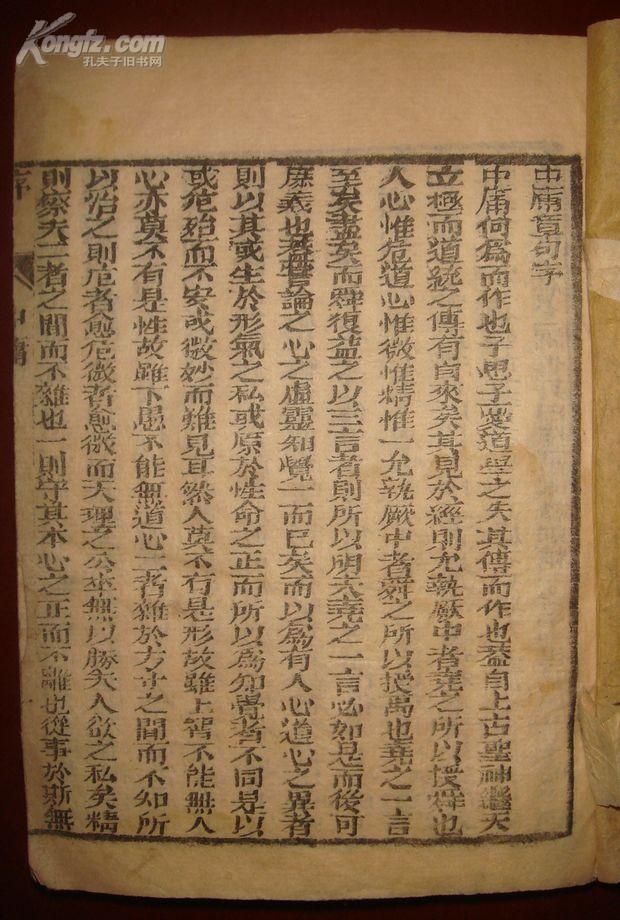 Kongfz.com
孔夫子旧书网
中庸章句序
中庸何爲而作也子思子憂道學之失其傳而作也蓋自上古聖神繼天
立極而道統之傳有自來矣其見於經則允執厥中者堯之所以授舜也
人心惟危道心惟微惟精惟一允執厥中者舜之所以授禹也堯之一言
至矣盡矣而舜復益之以三言者則所以明夫堯之一言必如是而後可
庶幾也蓋嘗論之心之虛靈知覺一而已矣而以爲有人心道心之異者
則以其或生於形氣之私或原於性命之正而所以爲知覺者不同是以
或危殆而不安或微妙而難見耳然人莫不有是形故雖上智不能無人
心亦莫不有是性故雖下愚不能無道心二者雜於方寸之間而不知所
以治之則危者愈危微者愈微而天理之公卒無以勝夫人欲之私矣精
則察夫二者之間而不雜也一則守其本心之正而不離也從事於斯無
序 中庸